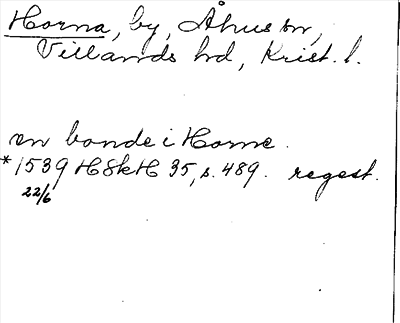 Horna, by, Åhus sn,
Villands hd, Krist. l.
en bonde i Horne.
*1539 HSkH 35, s. 489. regest.
22/6